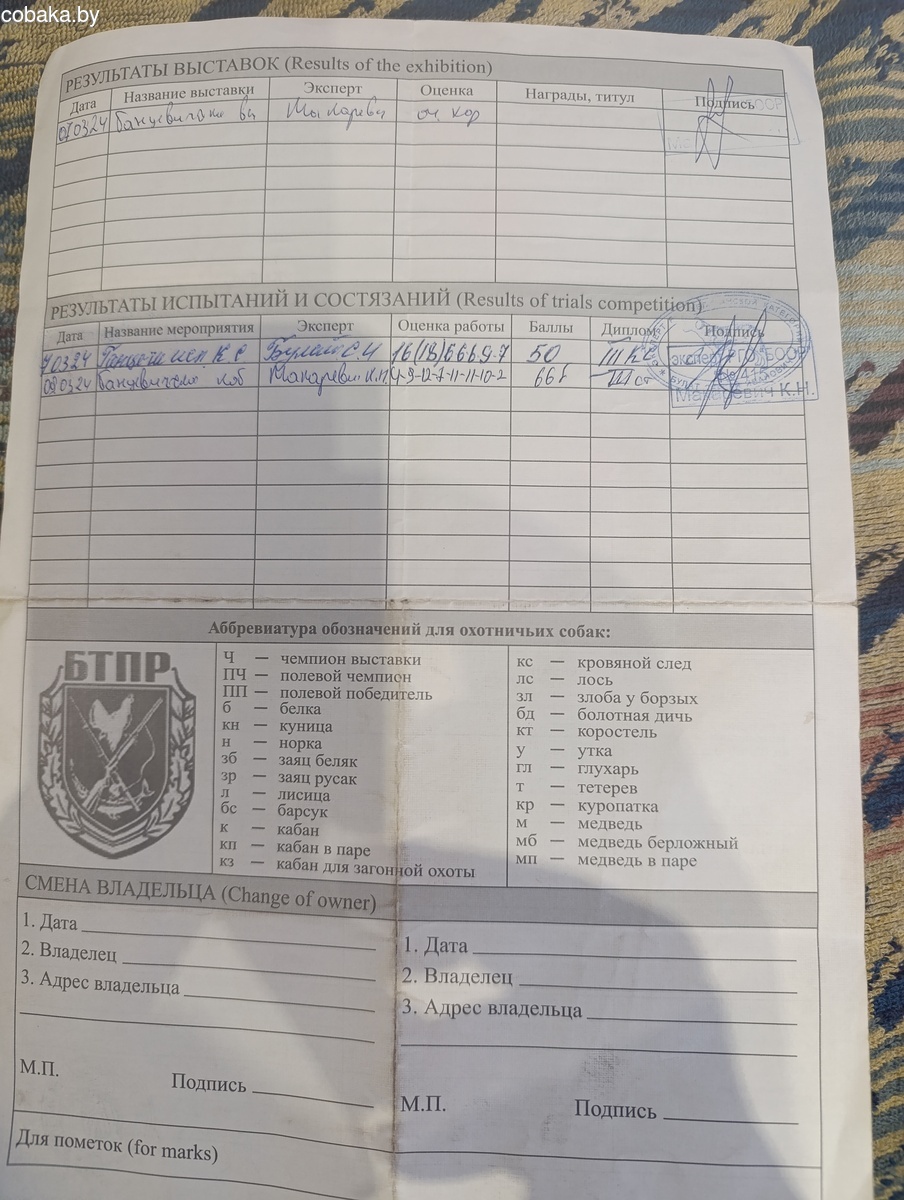 cobaka.by
РЕЗУЛЬТАТЫ ВЫСТАВОК (Results of the exhibition)
Дата Название выставки Эксперт Оценка Награды, титул Подпись
оч. хор
РЕЗУЛЬТАТЫ ИСПЫТАНИЙ И СОСТЯЗАНИЙ (Results of trials competition)
Дата Название мероприятия Эксперт Оценка работы Баллы Диплом Подпись
0324 исп КС 50 III КС
020324 Макаревич К.Н. 4-9-12-7-11-11-10-2 66 III ст
Макаревич К.Н.
Аббревиатура обозначений для охотничьих собак:
БТПР
Ч — чемпион выставки
ПЧ — полевой чемпион
ПП — полевой победитель
б — белка
кн — куница
н — норка
зб — заяц беляк
зр — заяц русак
л — лисица
бс — барсук
к — кабан
кп — кабан в паре
кз — кабан для загонной охоты
кс — кровяной след
лс — лось
зл — злоба у борзых
бд — болотная дичь
кт — коростель
у — утка
гл — глухарь
т — тетерев
кр — куропатка
м — медведь
мб — медведь берложный
мп — медведь в паре
СМЕНА ВЛАДЕЛЬЦА (Change of owner)
1. Дата
2. Владелец
3. Адрес владельца
М.П. Подпись
1. Дата
2. Владелец
3. Адрес владельца
М.П. Подпись
Для пометок (for marks)